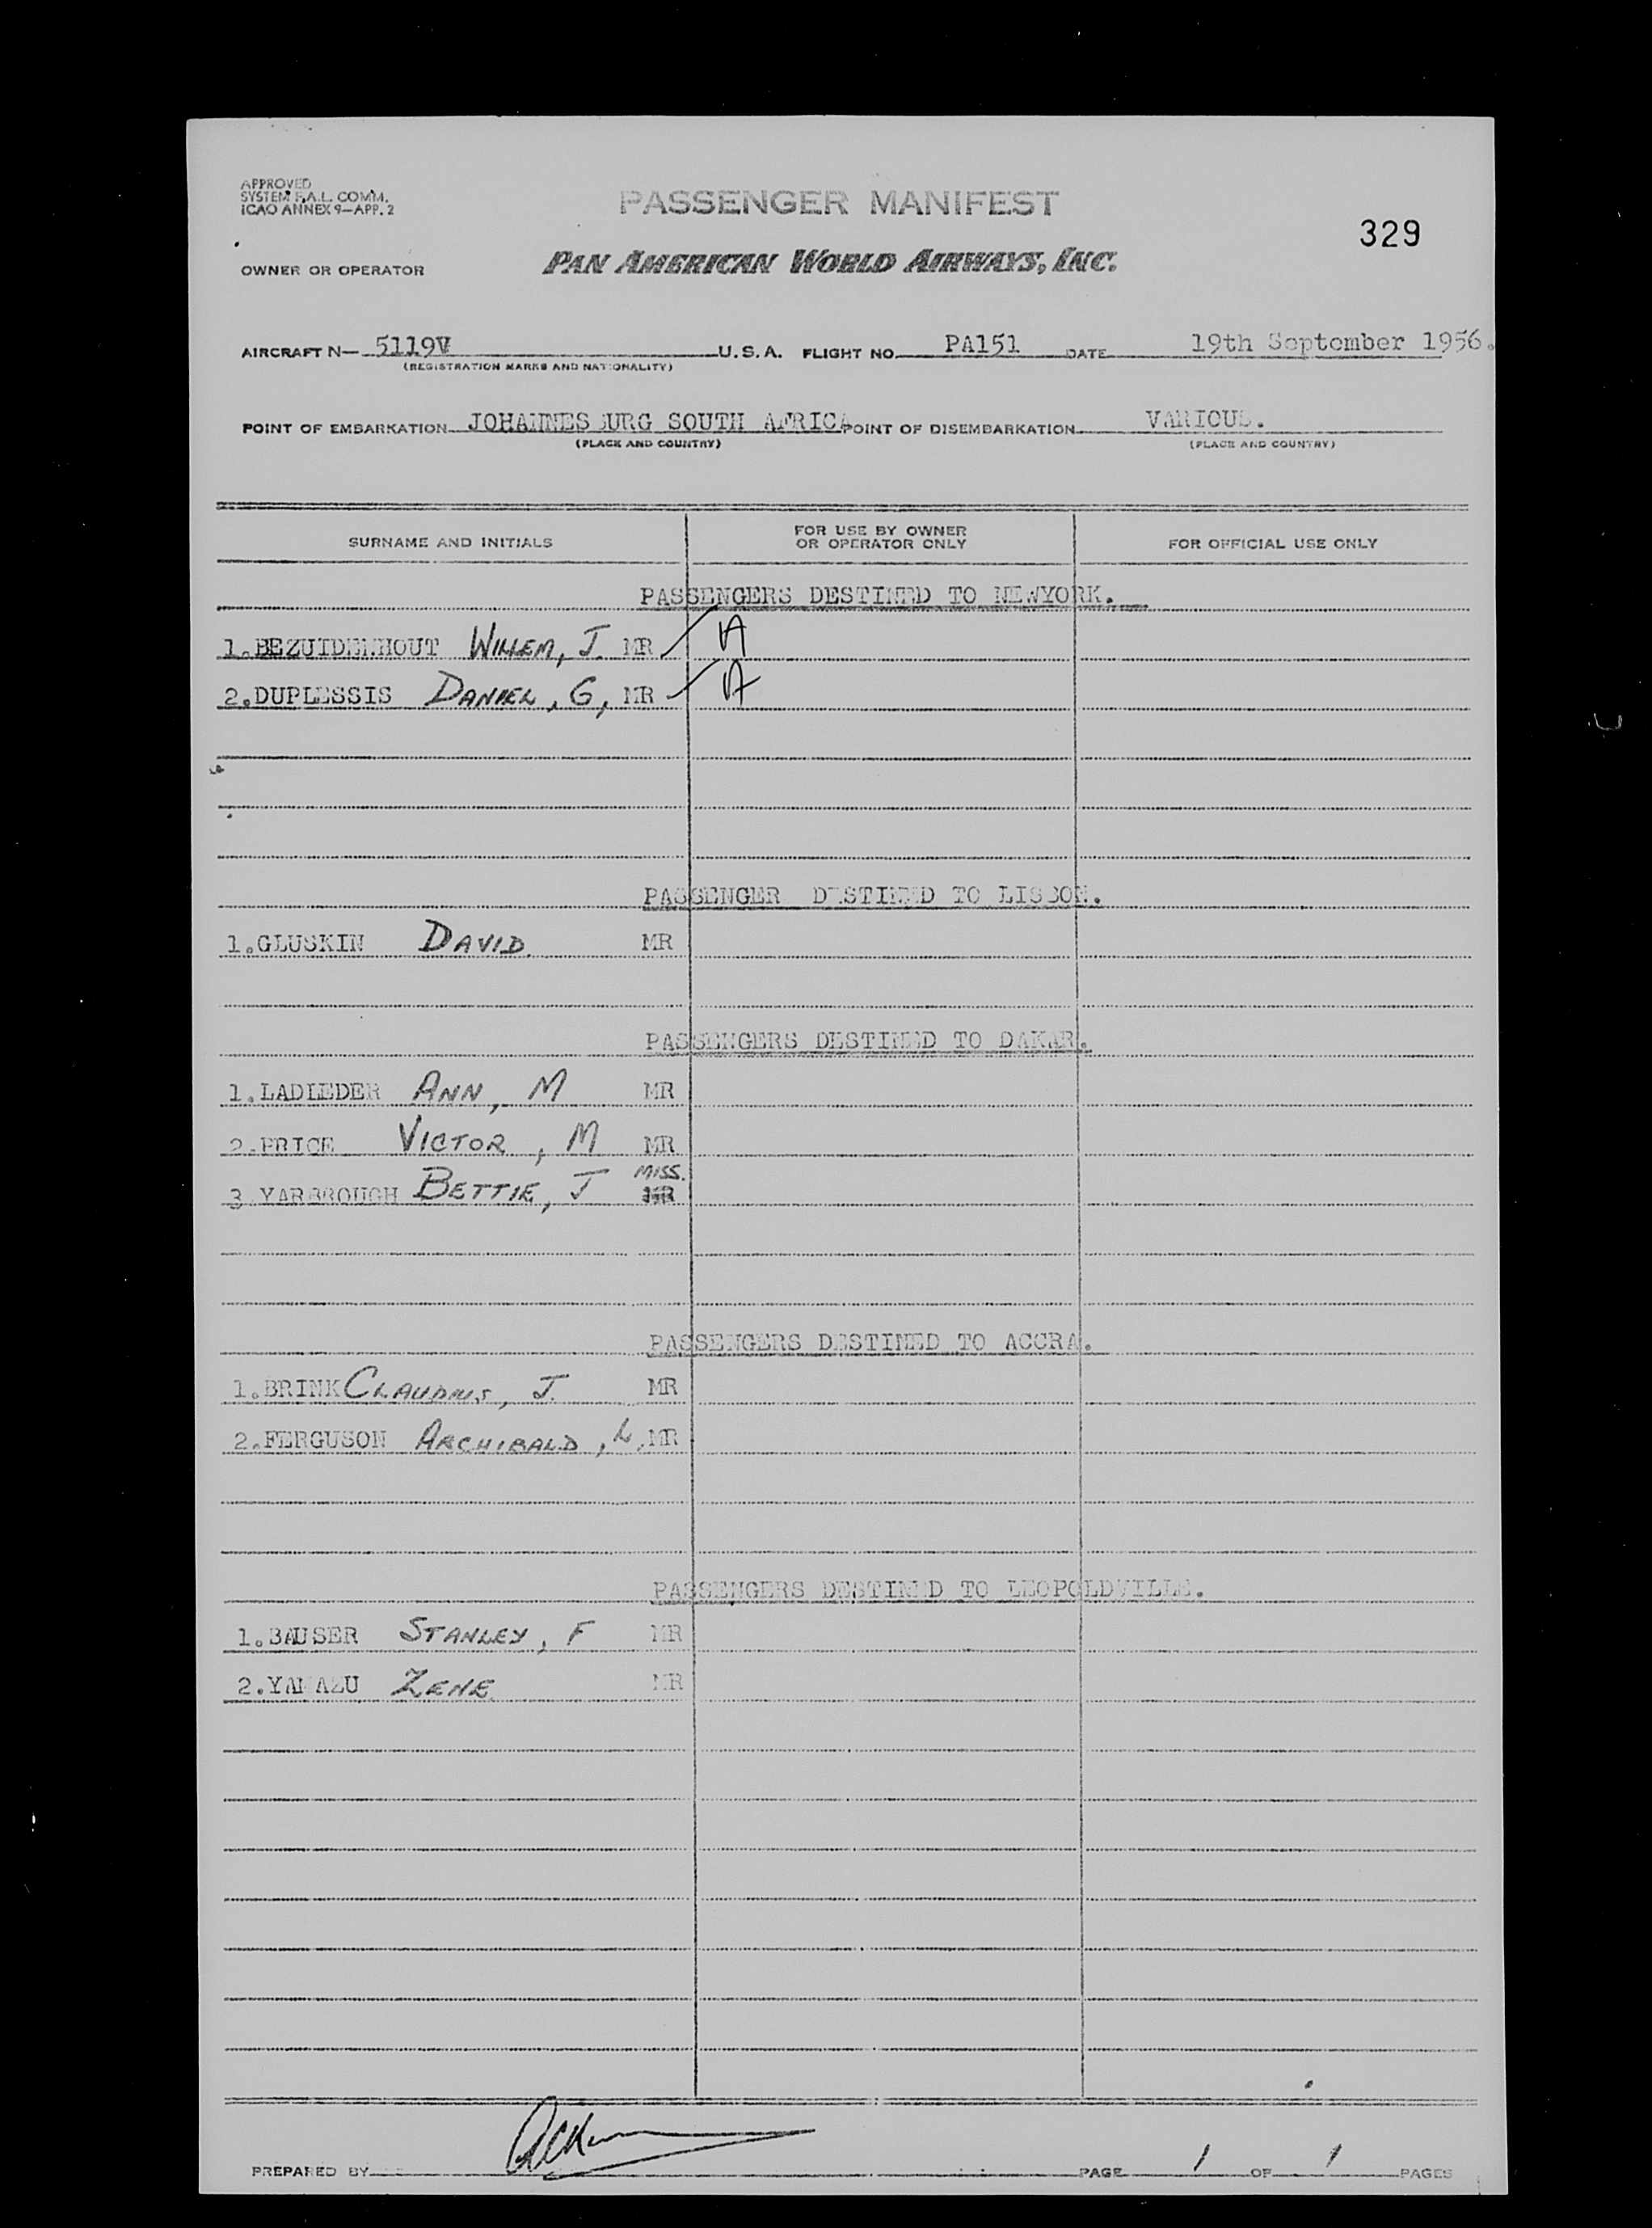 APPROVED
SYSTEM F.A.L. COMM.
ICAO ANNEX 9—APP. 2
PASSENGER MANIFEST
329
OWNER OR OPERATOR PAN AMERICAN WORLD AIRWAYS, INC.
AIRCRAFT N— 5119V U.S.A. FLIGHT NO. PA151 DATE 19th September 1956.
(REGISTRATION MARKS AND NATIONALITY)
POINT OF EMBARKATION JOHANNESBURG SOUTH AFRICA POINT OF DISEMBARKATION VARIOUS.
(PLACE AND COUNTRY) (PLACE AND COUNTRY)
SURNAME AND INITIALS FOR USE BY OWNER OR OPERATOR ONLY FOR OFFICIAL USE ONLY
PASSENGERS DESTINED TO NEWYORK.
1.BEZUIDENHOUT WILLEM, J. MR
2.DUPLESSIS DANIEL, G, MR
PASSENGER DESTINED TO LISBON.
1.GLUSKIN DAVID. MR
PASSENGERS DESTINED TO DAKAR.
1.LADLEDER ANN, M MR
2.PRICE VICTOR, M MR
3.YARBROUGH BETTIE, J MISS.
PASSENGERS DESTINED TO ACCRA.
1.BRINK CLAUDIUS, J. MR
2.FERGUSON ARCHIBALD, L. MR
PASSENGERS DESTINED TO LEOPOLDVILLE.
1.BAUSER STANLEY, F MR
2. ZENE MR
PREPARED BY PAGE 1 OF 1 PAGES